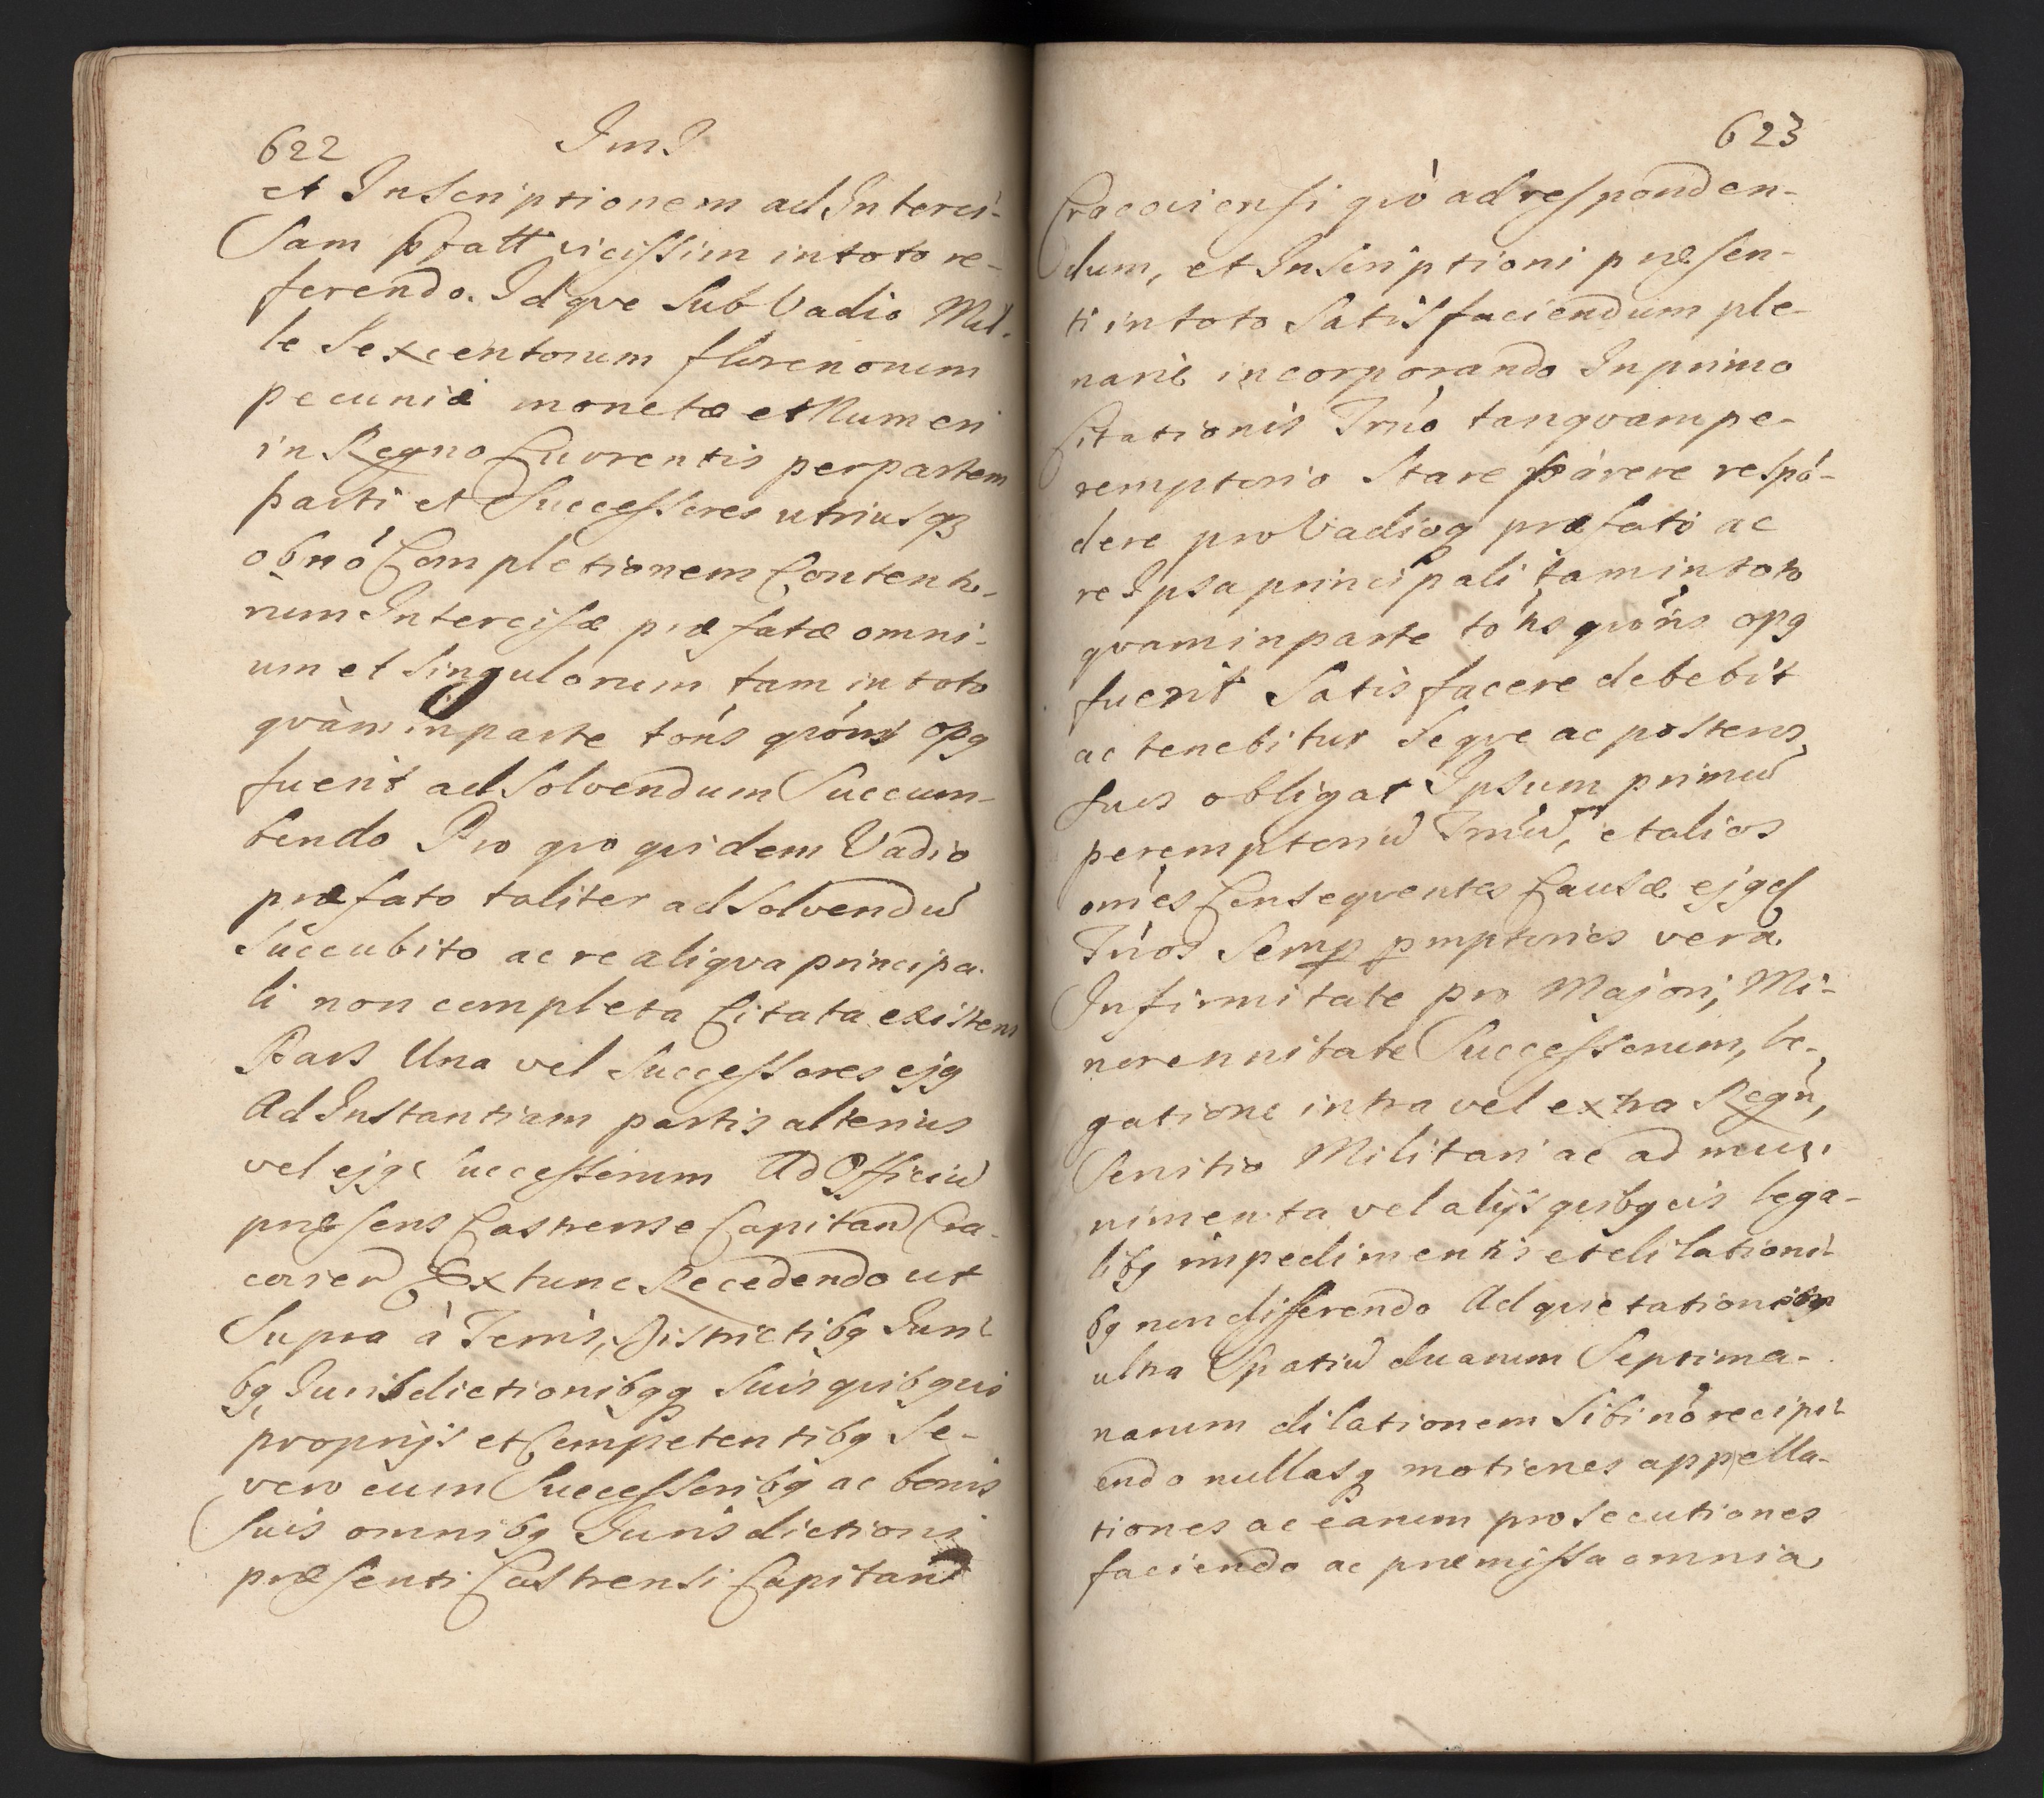 622 Ins
et Inscriptionem ad Interci-
sam pfatt vicissim in toto re-
ferendo. Idqve sub Vadio Mil-
le Sexcentorum florenorum
pecuniæ monetæ et Numeri
in Regno Currentis per partem
parti et Successores utriusqz
ob nó Completionem Contento-
rum Intercisæ præfatæ omni-
um et singulorum tam in toto
qvàm in parte tóns qvóns opg
fuerit ad solvendum Succum-
bendo Pro qvo qvidem Vadio
præfato taliter ad solvendū
succubito ac re aliqva principa-
li non completa Citata existens
Pars Una vel Successores ejg
Ad Instantiam partis alterius
vel ejg Successorum Ad Officiū
præsens Castrense Capitan Cra-
covien Extunc Recedendo ut
Supra à Terris, Districtibg Juri-
bg, Jurisdictionibgq suis qvibqvis
proprijs et Competentibg Se-
vero cum Successoribg ac bonis
suis omnibg Jurisdictioni
præsenti Castrensi Capitan
623
Cracoviensi qvò ad responden-
dum, et Inscriptioni præsen-
ti in toto Satisfaciendum ple-
narie incorporando In primo
Citationis Trńo tanqvam pe-
remptorio Stare parere respó-
dere pro Vadioq præfato ac
re Ipsa principali tam in toto
qvam in parte tóties qvóns opg
fuerit Satisfacere debebit
ac tenebitur Seqve ac posteros
suos obligat Ipsum primū
peremptoriū Trńū, et alios
omńes Conseqventes Causæ ejgd
Tńos Semp pmptorios vera
Infirmitate pro Majori, Mi-
norennitate Successorum, le-
gatione intra vel extra Regń,
Servitio Militari ac ad mun-
nimenta vel alijs qvibgvis lega-
libg impedimentis et dilationi-
bg non differendo Ad qvietationibg
ultra Spatiū duarum Septima-
narum dilationem sibi nó recipi-
endo nullasq motiones appella-
tiones ac earum prosecutiones
faciendo ac præmissa omnia